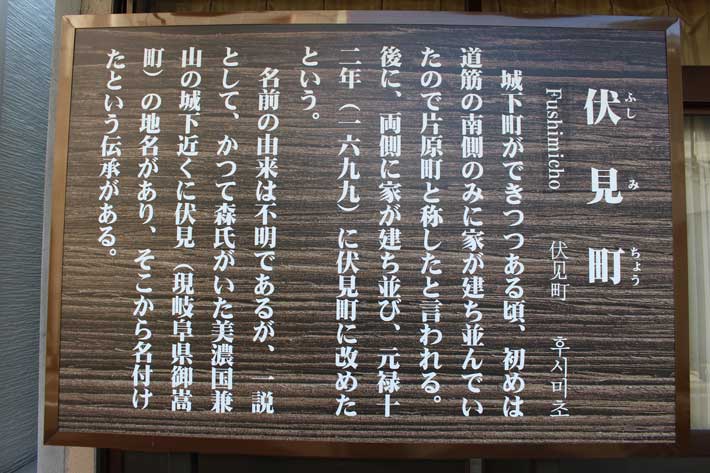 伏見町
ふしみちょう
Fushimicho 伏见町 후시미초
城下町ができつつある頃、初めは
道筋の南側のみに家が建ち並んでい
たので片原町と称したと言われる。
後に、両側に家が建ち並び、元禄十
二年（一六九九）に伏見町に改めた
という。
名前の由来は不明であるが、一説
として、かつて森氏がいた美濃国兼
山の城下近くに伏見（現岐阜県御嵩
町）の地名があり、そこから名付け
たという伝承がある。